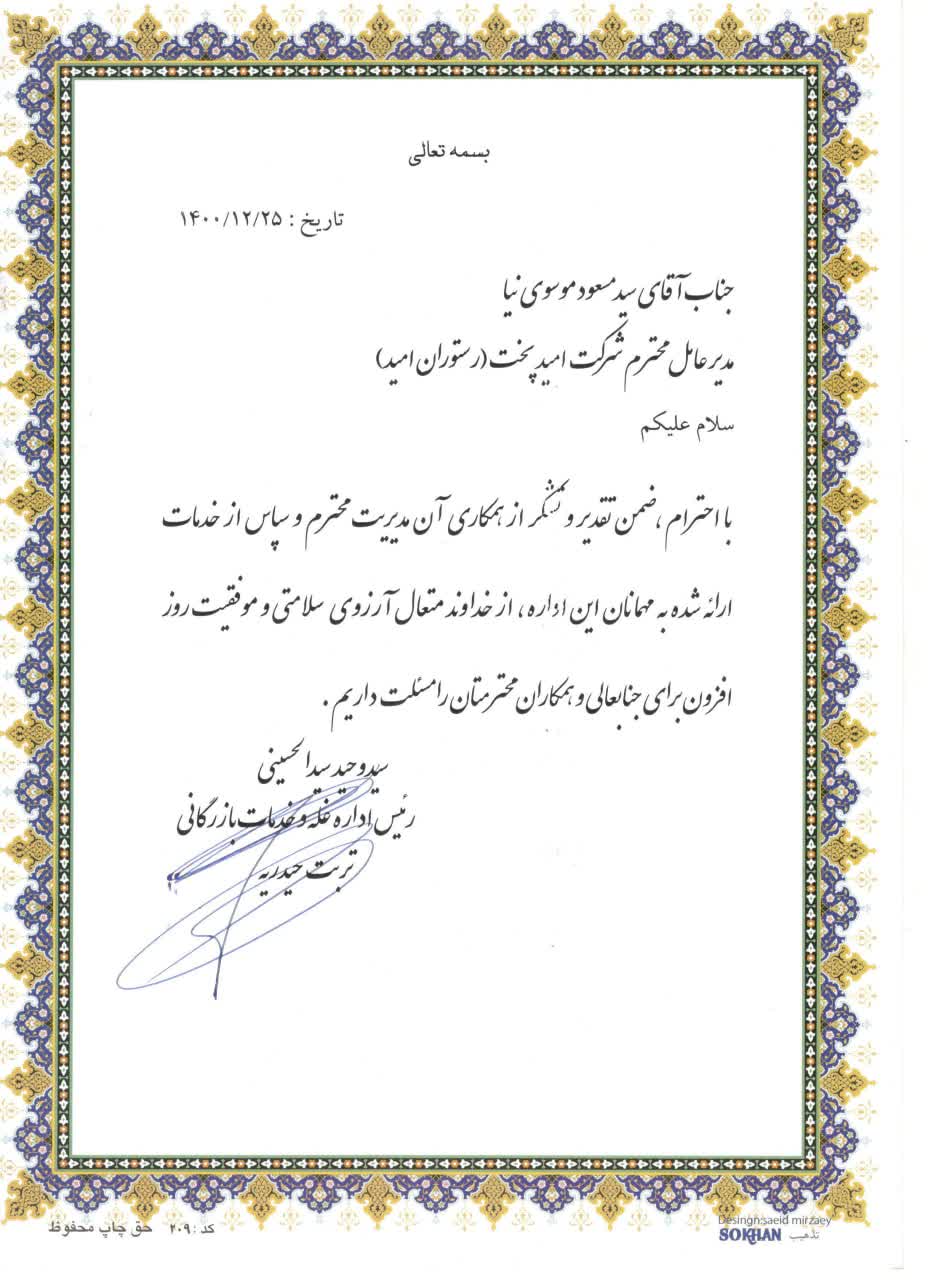 بسمه تعالی
تاریخ : ۱۴۰۰/۱۲/۲۵
جناب آقای سید مسعود موسوی نیا
مدیرعامل محترم شرکت امید پخت (رستوران امید)
سلام علیکم
با احترام ،ضمن تقدیر و تشکر از همکاری آن مدیریت محترم و سپاس از خدمات
ارائه شده به مهمانان این اداره ، از خداوند متعال آرزوی سلامتی و موفقیت روز
افزون برای جنابعالی و همکاران محترمتان را مسئلت داریم .
سید وحید سیدالحسینی
رئیس اداره غله و خدمات بازرگانی
تربت حیدریه
کد : ۲۰۹ حق چاپ محفوظ
Desingn:saeid mirzaey
SOKHAN تذهیب